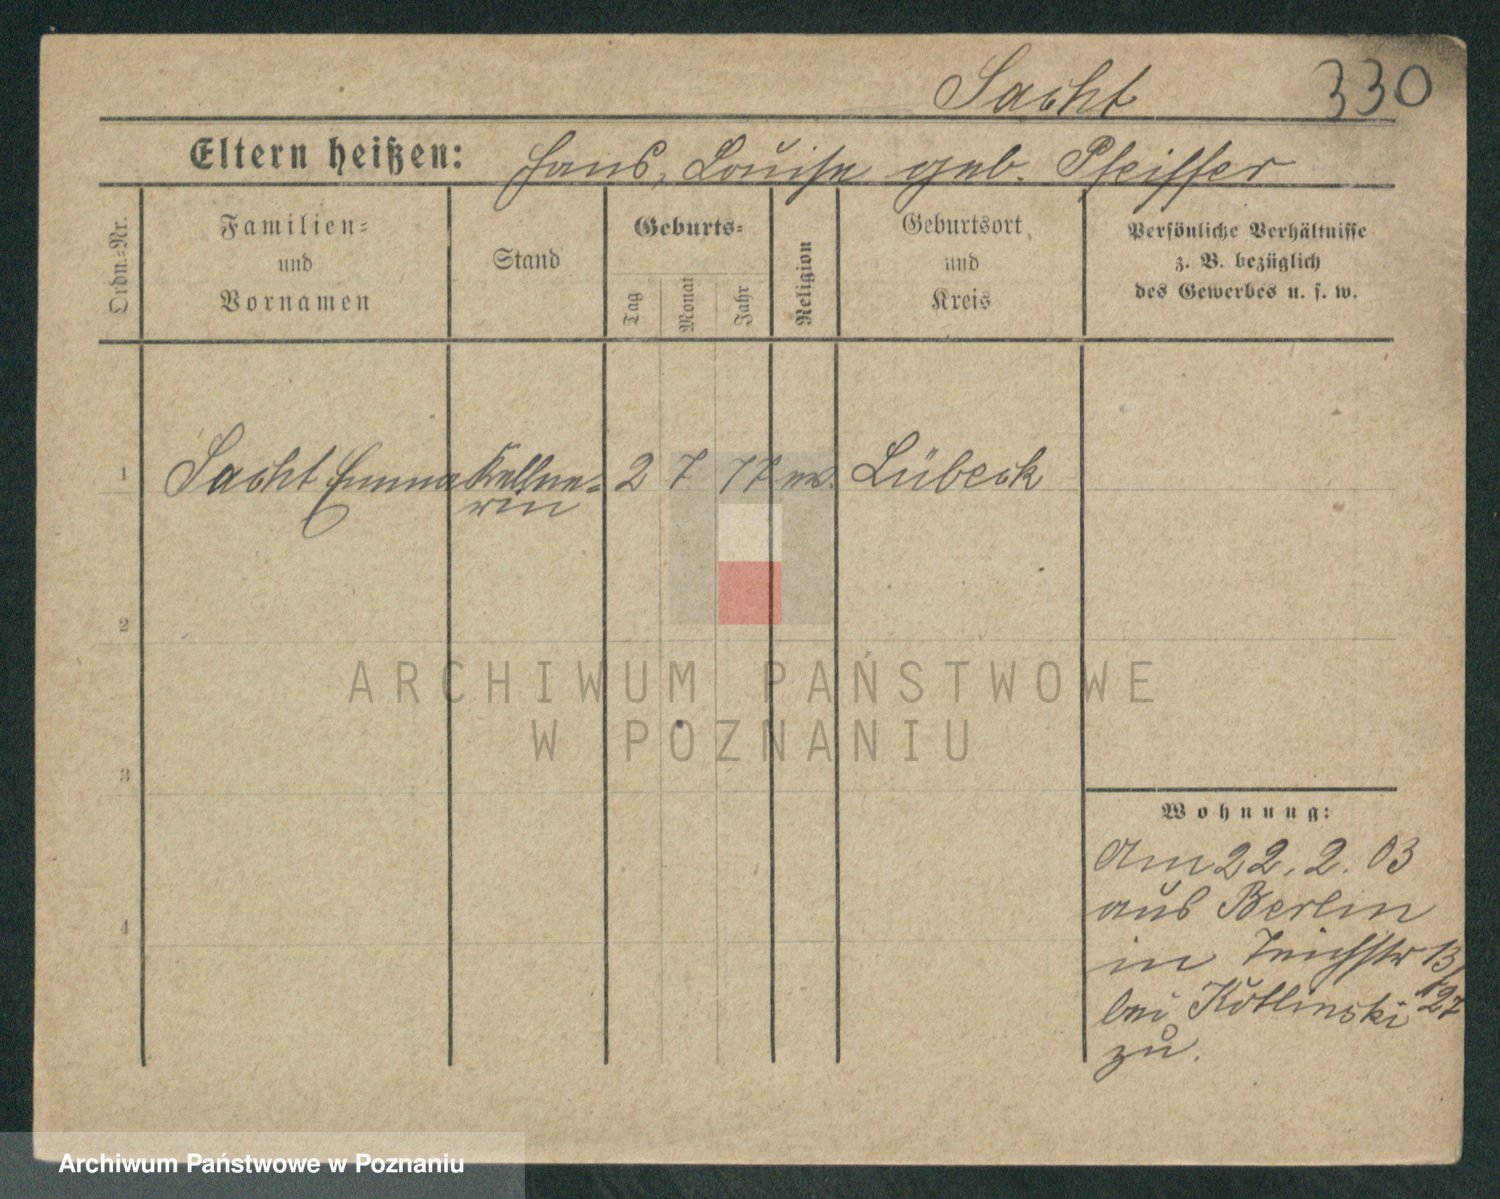 Sacht 330
Eltern heißen: Hans, Louise geb. Pfeiffer
Ordn.-Nr.
Familien-
und
Vornamen
Stand
Geburts-
Tag
Monat
Jahr
Religion
Geburtsort
und
Kreis
Persönliche Verhältnisse
z. B. bezüglich
des Gewerbes u. s. w.
1 Sacht Emma Kellne- 2 7 77 Lübeck
rin
2
ARCHIWUM PAŃSTWOWE
W POZNANIU
3
Wohnung:
Am 22. 2. 03
aus Berlin
4
in Teichstr 13/
bei Kotlinski 127
zu.
Archiwum Państwowe w Poznaniu